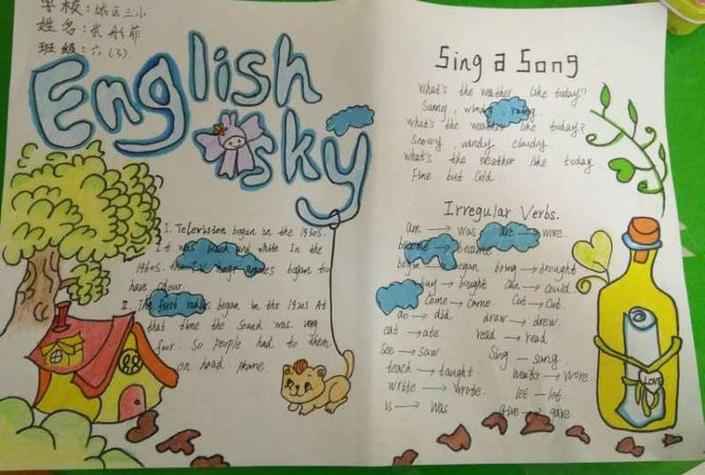 学校：
姓名：张
班级：六（3）
English
sky
I. Television began in the 1930s.
It was and white In the
1960s. the began to
have colour.
II. The first radios began in the 1920s At
that time the Sound was very
So people had to them
on head phone.
Sing a Song
What's the weather like today?
Sunny, windy
What's the weather like today?
Snowy, windy cloudy
What's the weather like today
Fine but Cold
Irregular Verbs.
am → was are → were
become → became
begin → began bring → brought
buy → bought can → could
Come → came Cut → Cut
do → did draw → drew
eat → ate read → read
See → saw Sing → sang
teach → taught wore
write → wrote let → let
is → was give → gave
LOVE